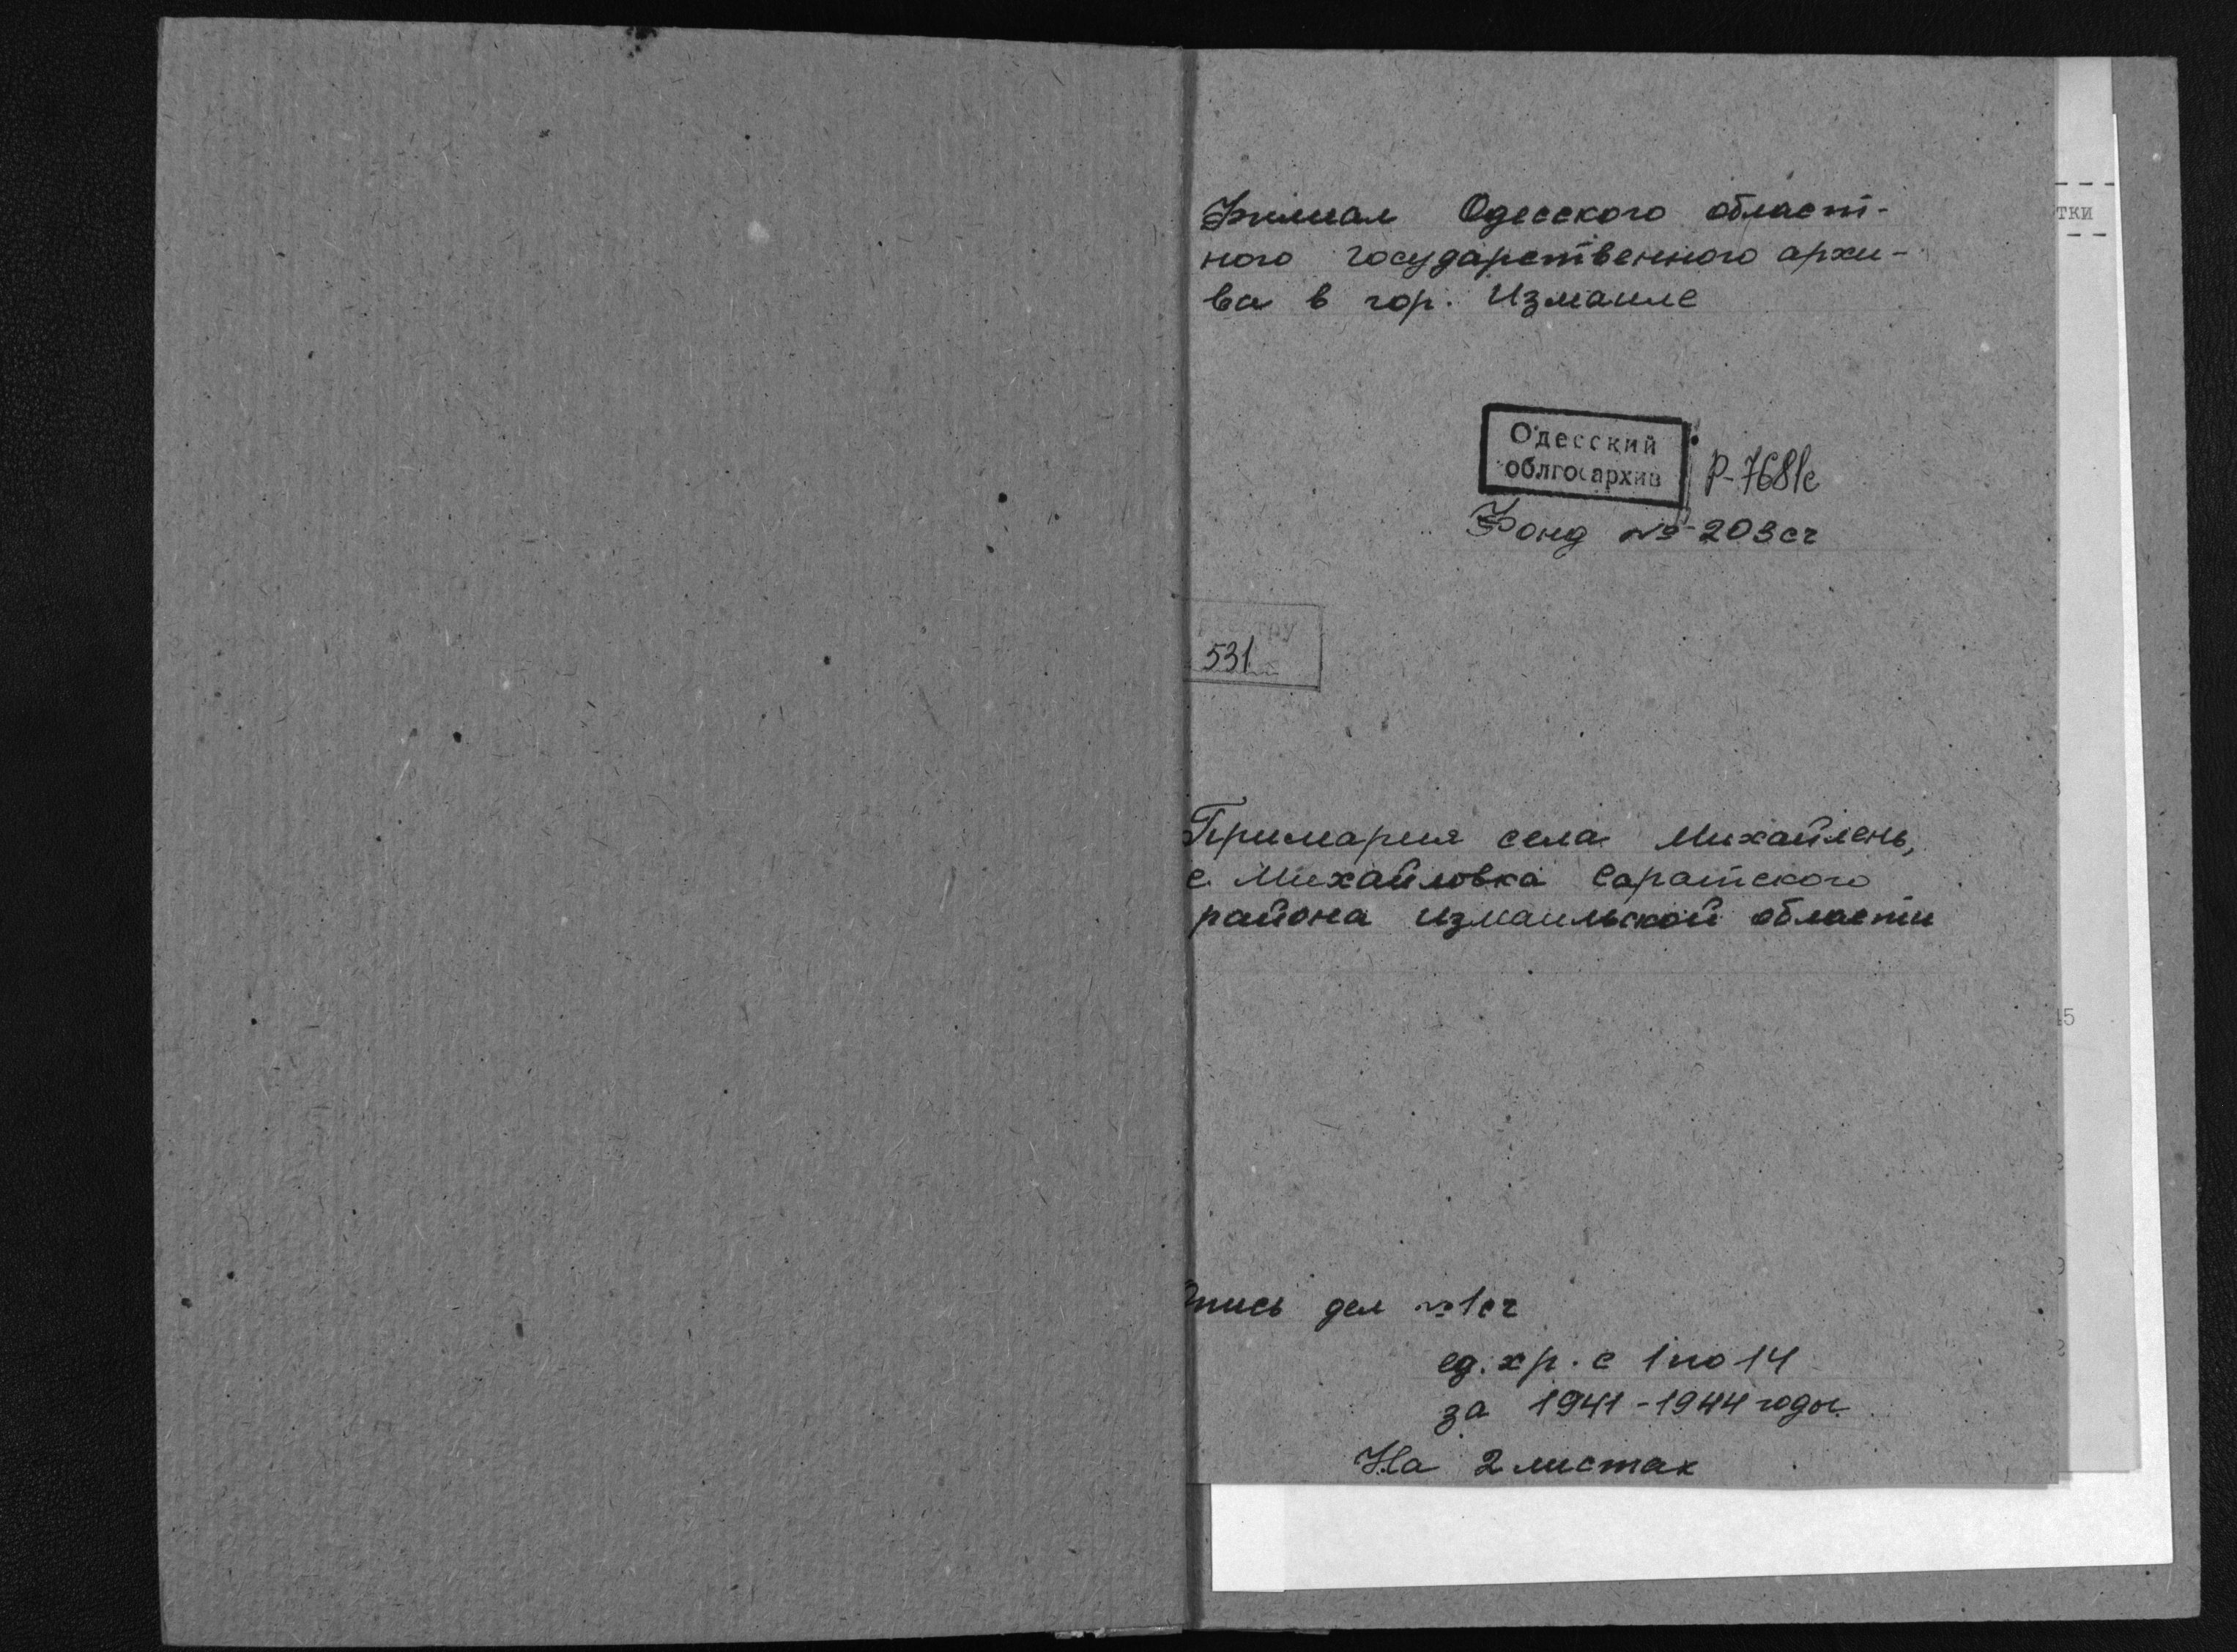 Филиал Одесского област-
ного государственного архи-
ва в гор. Измаиле
тки
Одесский
облгосархив
Р-7681с
Фонд №-203сч
531
Примария села Михайлень,
с. Михайловка Саратского
района Измаильской области
15
Опись дел №1сч
ед. хр. с 1 по 14
за 1941-1944 годы
На 2 листах